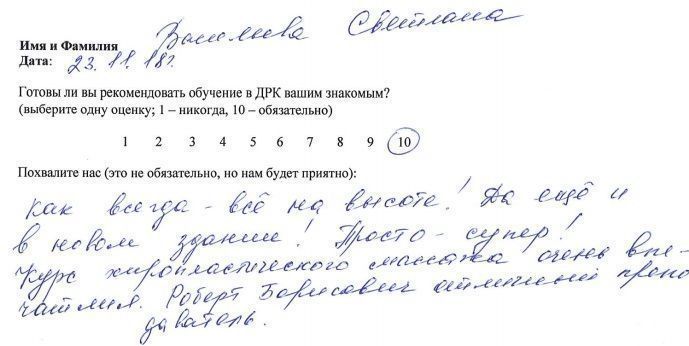 Имя и Фамилия Васильева Светлана
Дата: 23.11.18г.
Готовы ли вы рекомендовать обучение в ДРК вашим знакомым?
(выберите одну оценку; 1 – никогда, 10 – обязательно)
1 2 3 4 5 6 7 8 9 10
Похвалите нас (это не обязательно, но нам будет приятно):
Как всегда - всё на высоте! Да ещё и
в новом здании! Просто - супер!
Курс хиропластического массажа очень впе-
чатлил. Роберт Борисович отличный препо
даватель.